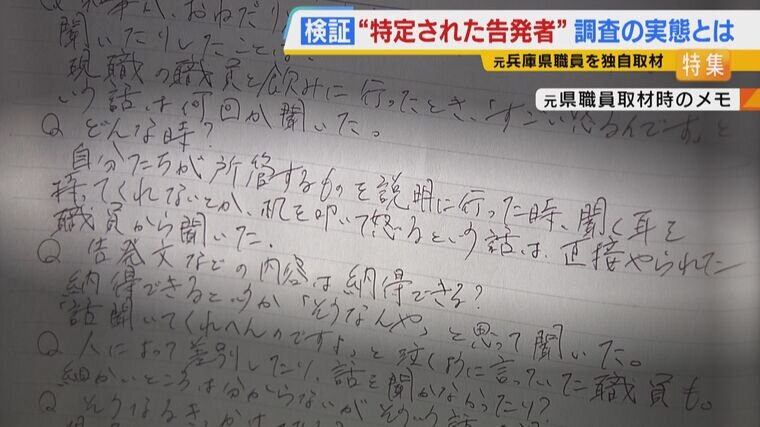 検証 “特定された告発者” 調査の実態とは
元兵庫県職員を独自取材
特集
元県職員取材時のメモ
おねだり
聞いたりしたことは。
現職の職員と飲みに行ったとき、「すごい怒るんです」と
いう話は何回か聞いた。
Q どんな時?
自分たちが所管するものを説明に行った時、聞く耳を
持ってくれないとか、机を叩いて怒るという話は、直接やられた
職員から聞いた。
Q 告発文などの内容は納得できる?
納得できるというか「そうなんや」と思って聞いた。
「話聞いてくれへんのですよ」と泣くめに言っていた職員も。
Q 人によって差別したり、話を聞かなかったり?
細かいところは分からないがそういう話
Q そうなるき